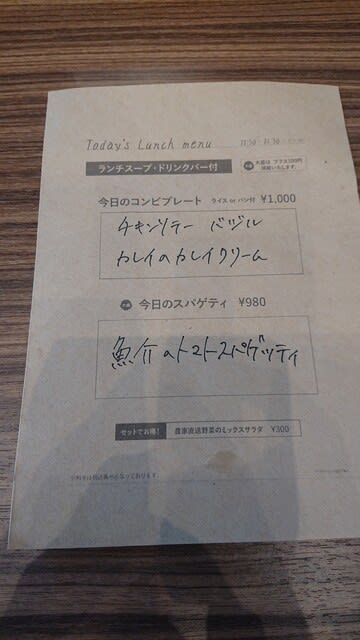 Today's Lunch menu
ランチスープ・ドリンクバー付
大盛は プラス100円
今日のコンビプレート ライス or パン付 ¥1,000
チキンソテー バジル
カレイのカレイクリーム
今日のスパゲティ ¥980
魚介のトマトスパゲッティ
セットでお得! 農家直送野菜のミックスサラダ ¥300